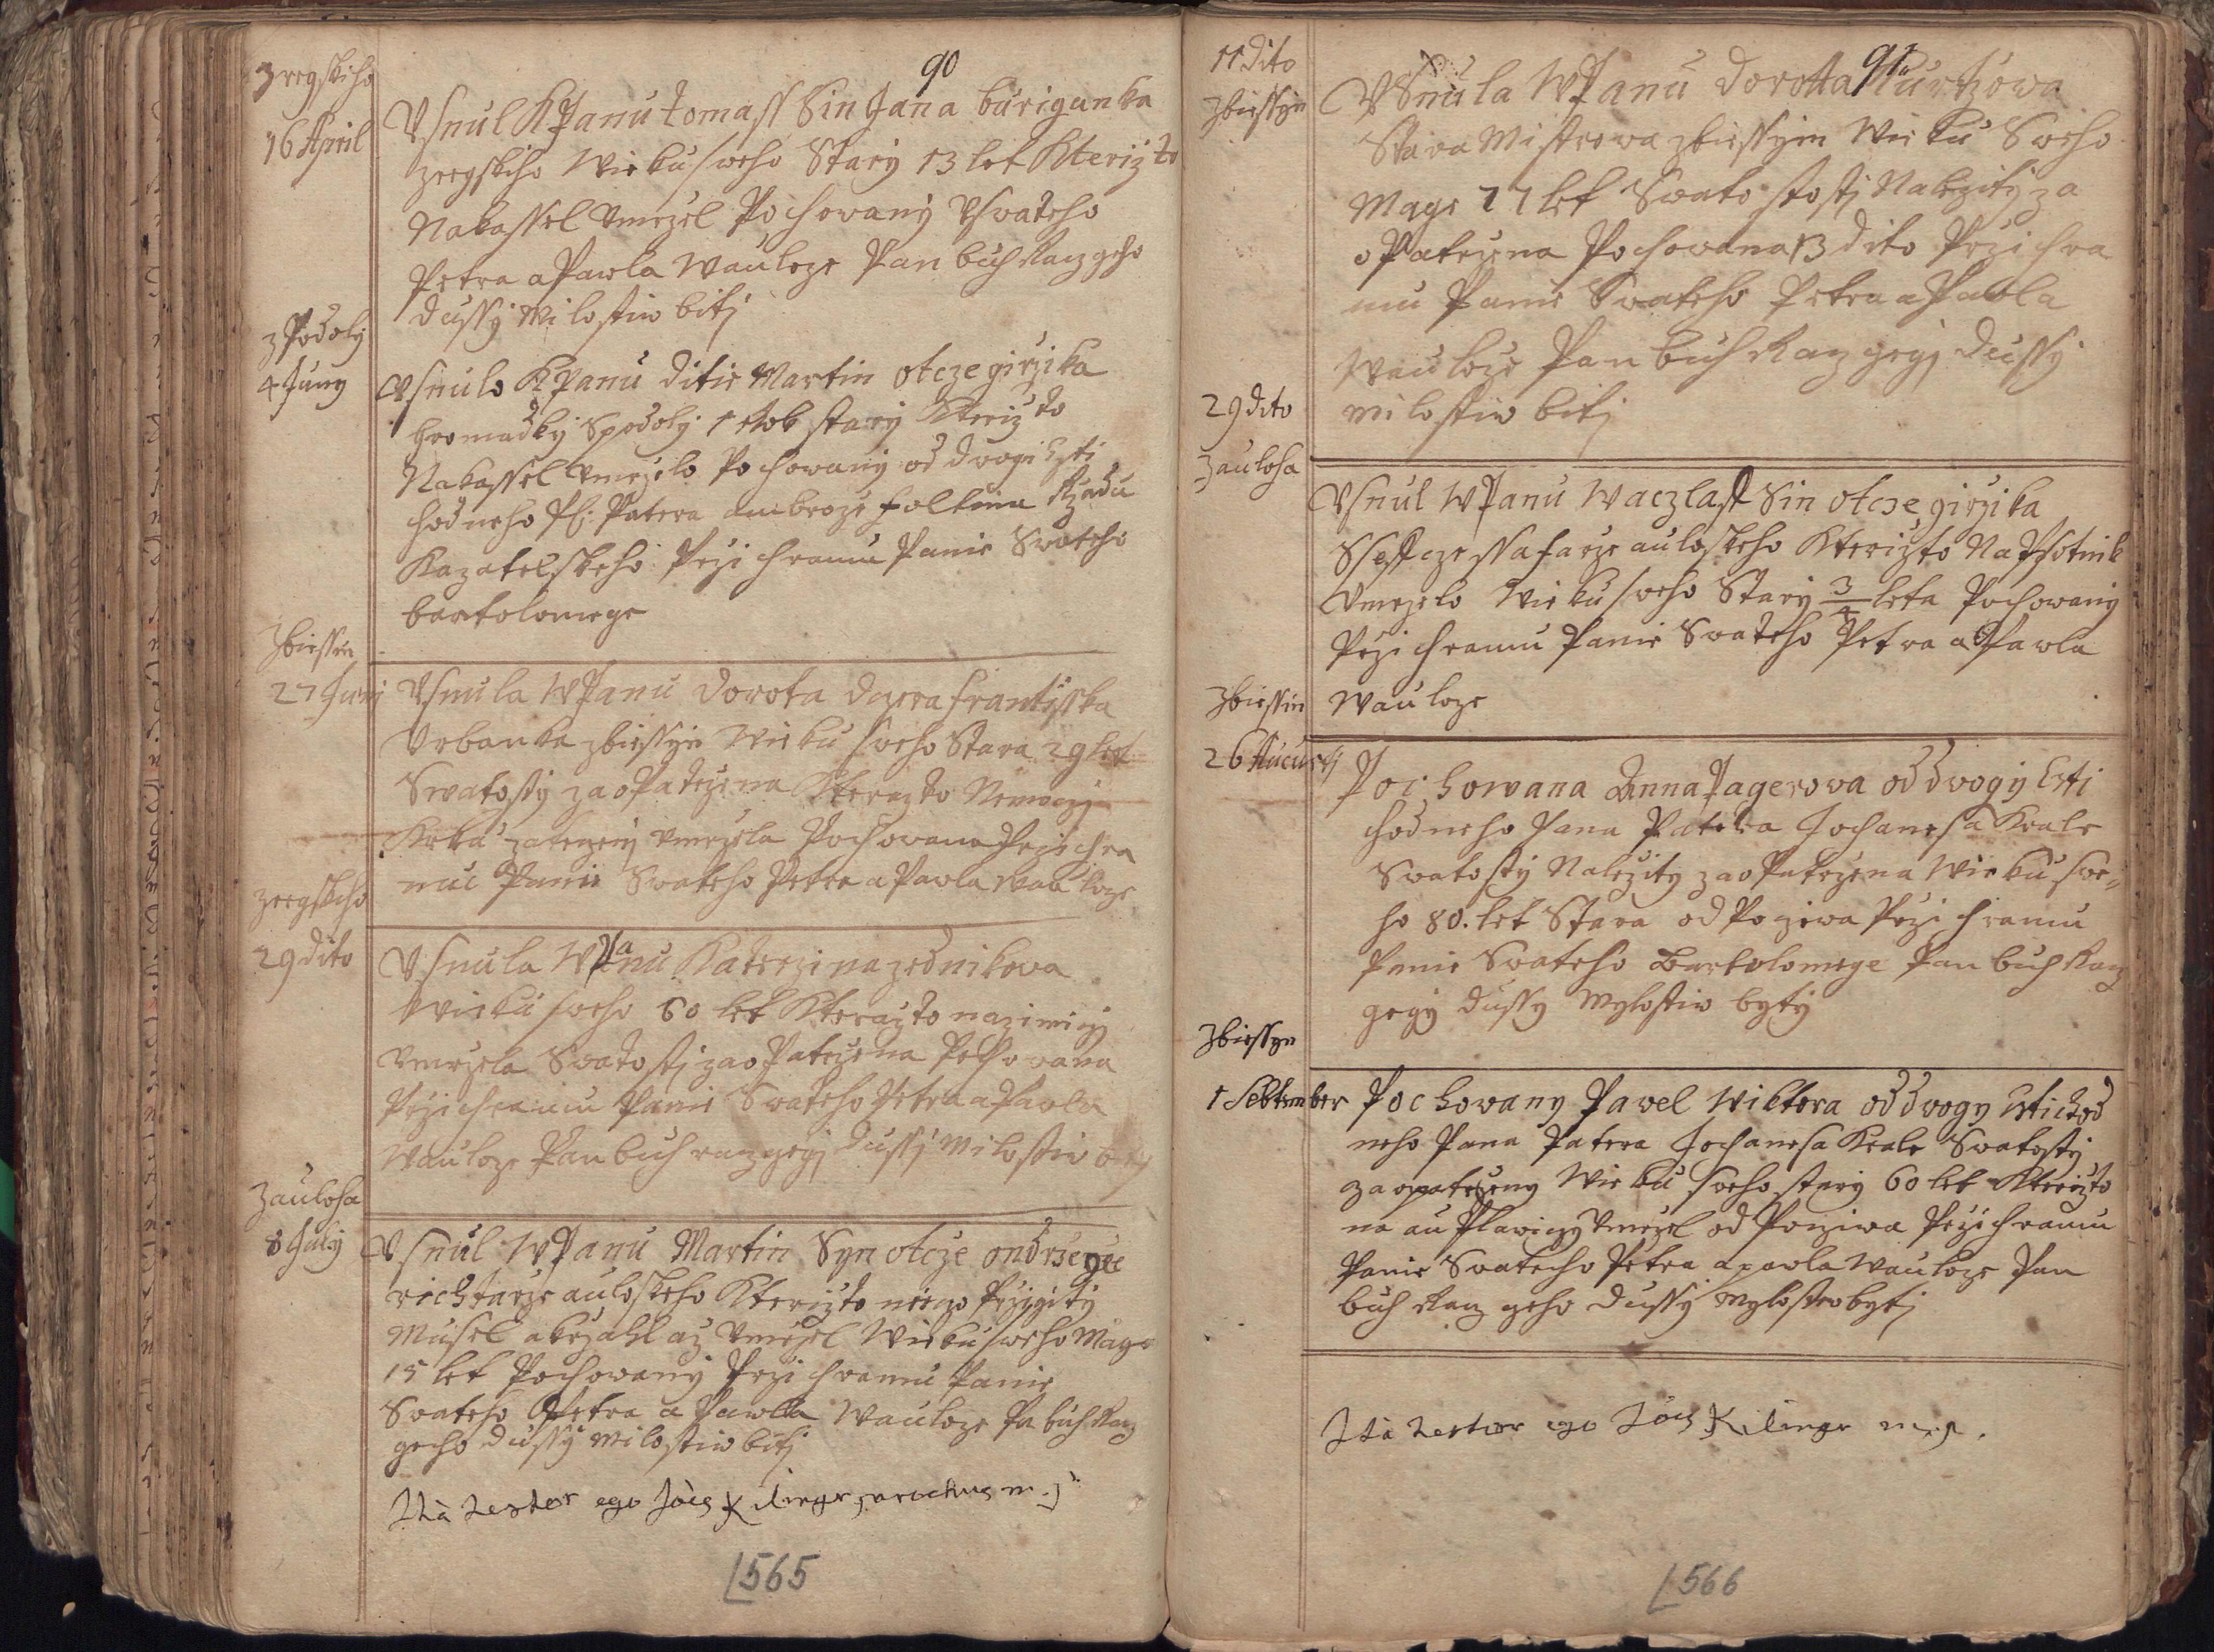 90
zregskiho
16 April
Vsnul KPanu tomass Sin Jana burigan ka
zregskiho Wieku sweho Stary 13 let Kteriz to
Nakassel Vmrzel Pochowany Vswateho
Petra a Pawla Wauloze Pan buh Racz geho
dussy Milostiw bitj
z Podoly
4 Juny
Vsnulo KPanu ditie Martin otcze girzika
hromadky Spodoly 1 Rok stary Kteriz to
Nakassel Vmrzelo Pochowany od dwogi Czti
hodneho P: Patera Ambroze foltina Rzadu
Kazatelskeho Przi chramu Panie Swateho
bartolomege
Zbiessin
27 Juni
Vsnula WPanu Dorota Dczera frantisska
Vrbanka zbiessyn Wieku sweho Stara 29 let
Swatosty zaopatrzena Kterazto Nemoczy
Vmrzela Pochowana Przi chra
mu Panie Swateho Petra a Pawla Wau loze
zregskiho
29 dito
Vsnula WPanu Katerzina zednikowa
Wieku sweho 60 let Kterazto nazimniczy
Vmrzela Swatostj zaopatrzena Pochowana
Przi chramu Panie Swateho Petra a Pawla
Wauloze Pan buh racz gegj dussj Milostiw bitj
Zauloha
8 July
Vsnul WPanu Martin Syn otcze ondrzege
richtarze auloskeho Kterizto
Musel a az Vmrzel Wieku sweho Mage
15 let Pochowany Przi chramu Panie
Swateho Petra a Pawla Wauloze Pa buh Racz
gecho dussy Milostiw bitj
Ità testor ego Joes Kilinger parochus m.p.
565
91
11 dito
Zbiessyn
VSnula WPanu Dorotta Kurtzowa
Stara Mistrowa zbiessyn Wieku Sweho
Mage 77 let Swatostostj Nalezity za
opatrzena Pochowana 13 dito Przi chra
mu Panie Swateho Petra a Pawla
Wauloze Pan buh Racz gegj Dussy
milostiw bitj
29 dito
Zauloha
Vsnul WPanu Waczlaf Sin otcze girzika
Ssefcze ssafarze auloskeho Kterizto Na Psotnik
Vmrzelo Wieku sweho Stary 3/4 leta Pochowany
Przi chramu Panie Swateho Petra a Pawla
Wauloze
Zbiessin
26 Aucustj
Pochowana Anna Pagerowa od dwogy Czti
hodneho Pana Patera Johanesa Krale
Swatosty Nalezity zaopatrzena Wieku swe„
ho 80. let Stara odPoziwa Przi chramu
Panie Swateho Bartolomege Pan buh Racz
gegy dussy Mylostiw byty
Zbiessyn
1 Sebtember
Pochowany Pawel Wiktora od dwogy Cztihod
neho Pana Patera Johanesa Krale Swatosty
zaopatrzeny Wieku sweho stary 60 let Kterizto
na au Plawiczy Vmrzel od Pocziwa Przi chramu
Panie Swatecho Petra a pawla Wauloze Pan
buh Racz geho Dussy Mylostiw bytj
Ità testor ego Joes Kilinger m.p.
566